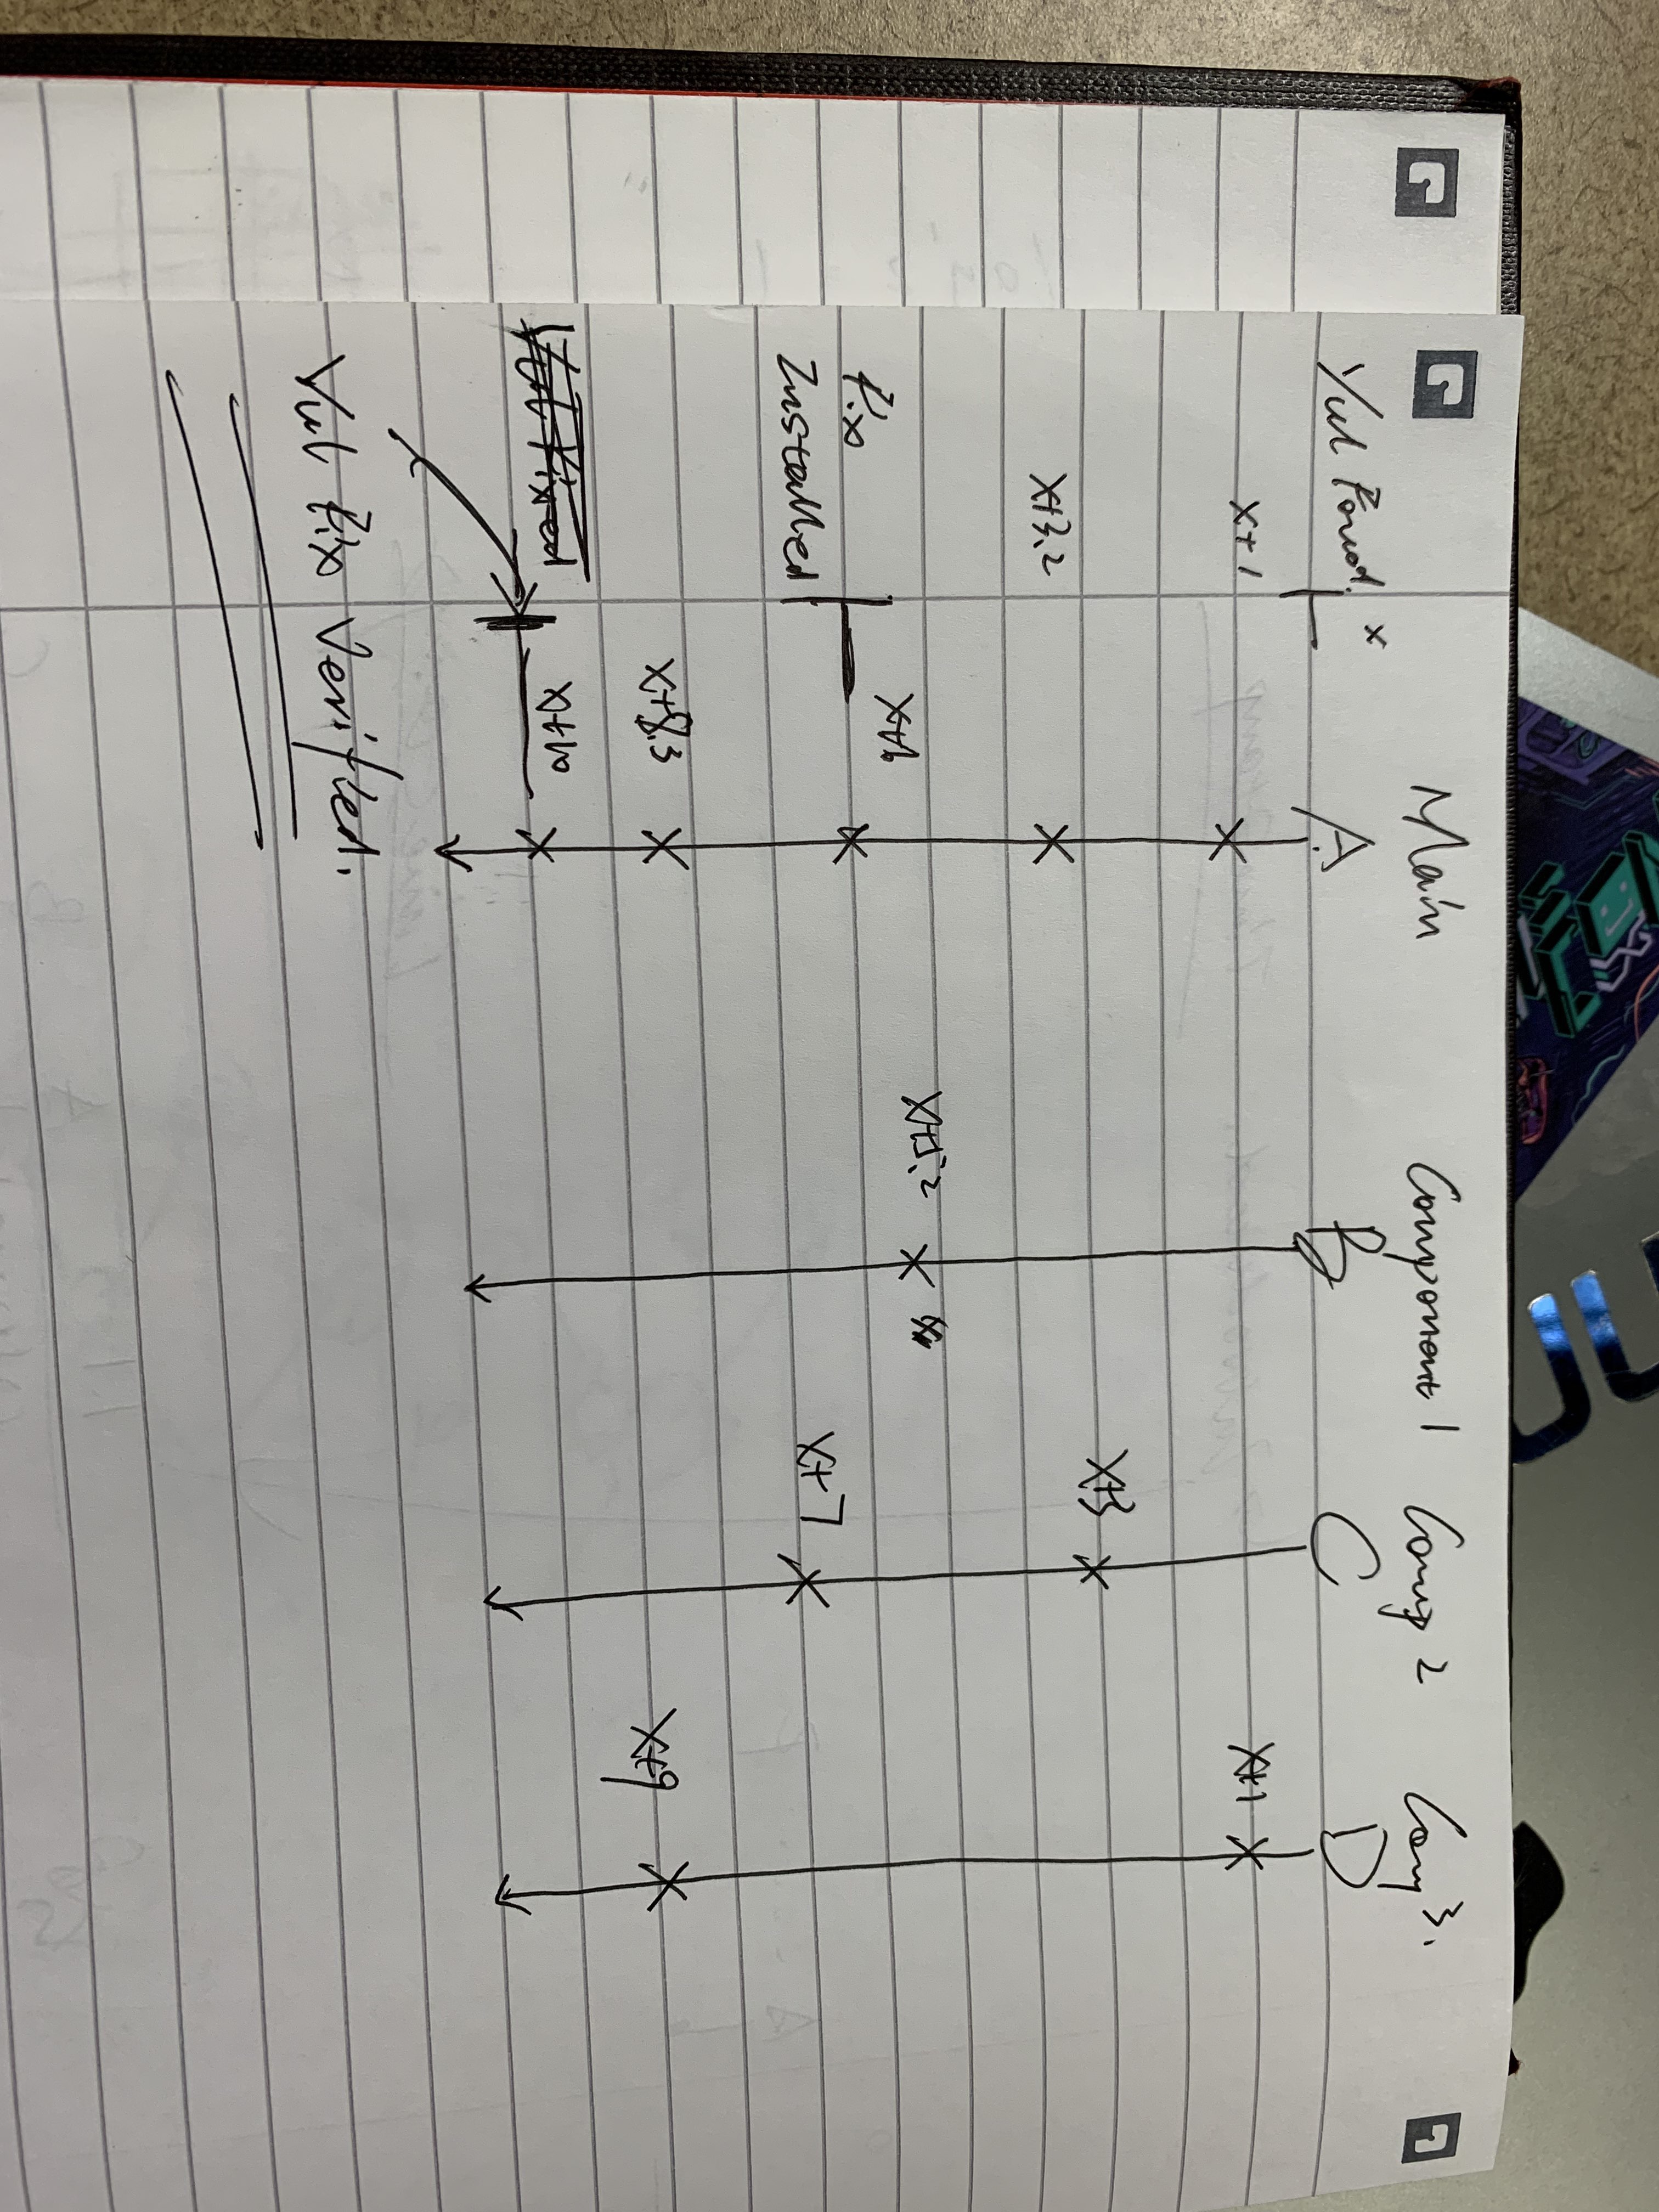 Main Component 1 Comp 2 Comp 3.
Vul Found. x A B C D
x+1 x+1
x+3
x+3.2
x+5.2
x+6
Fix
Installed
x+7
x+8.3 x+9
Vul Fixed x+10
Vul Fix Verified.